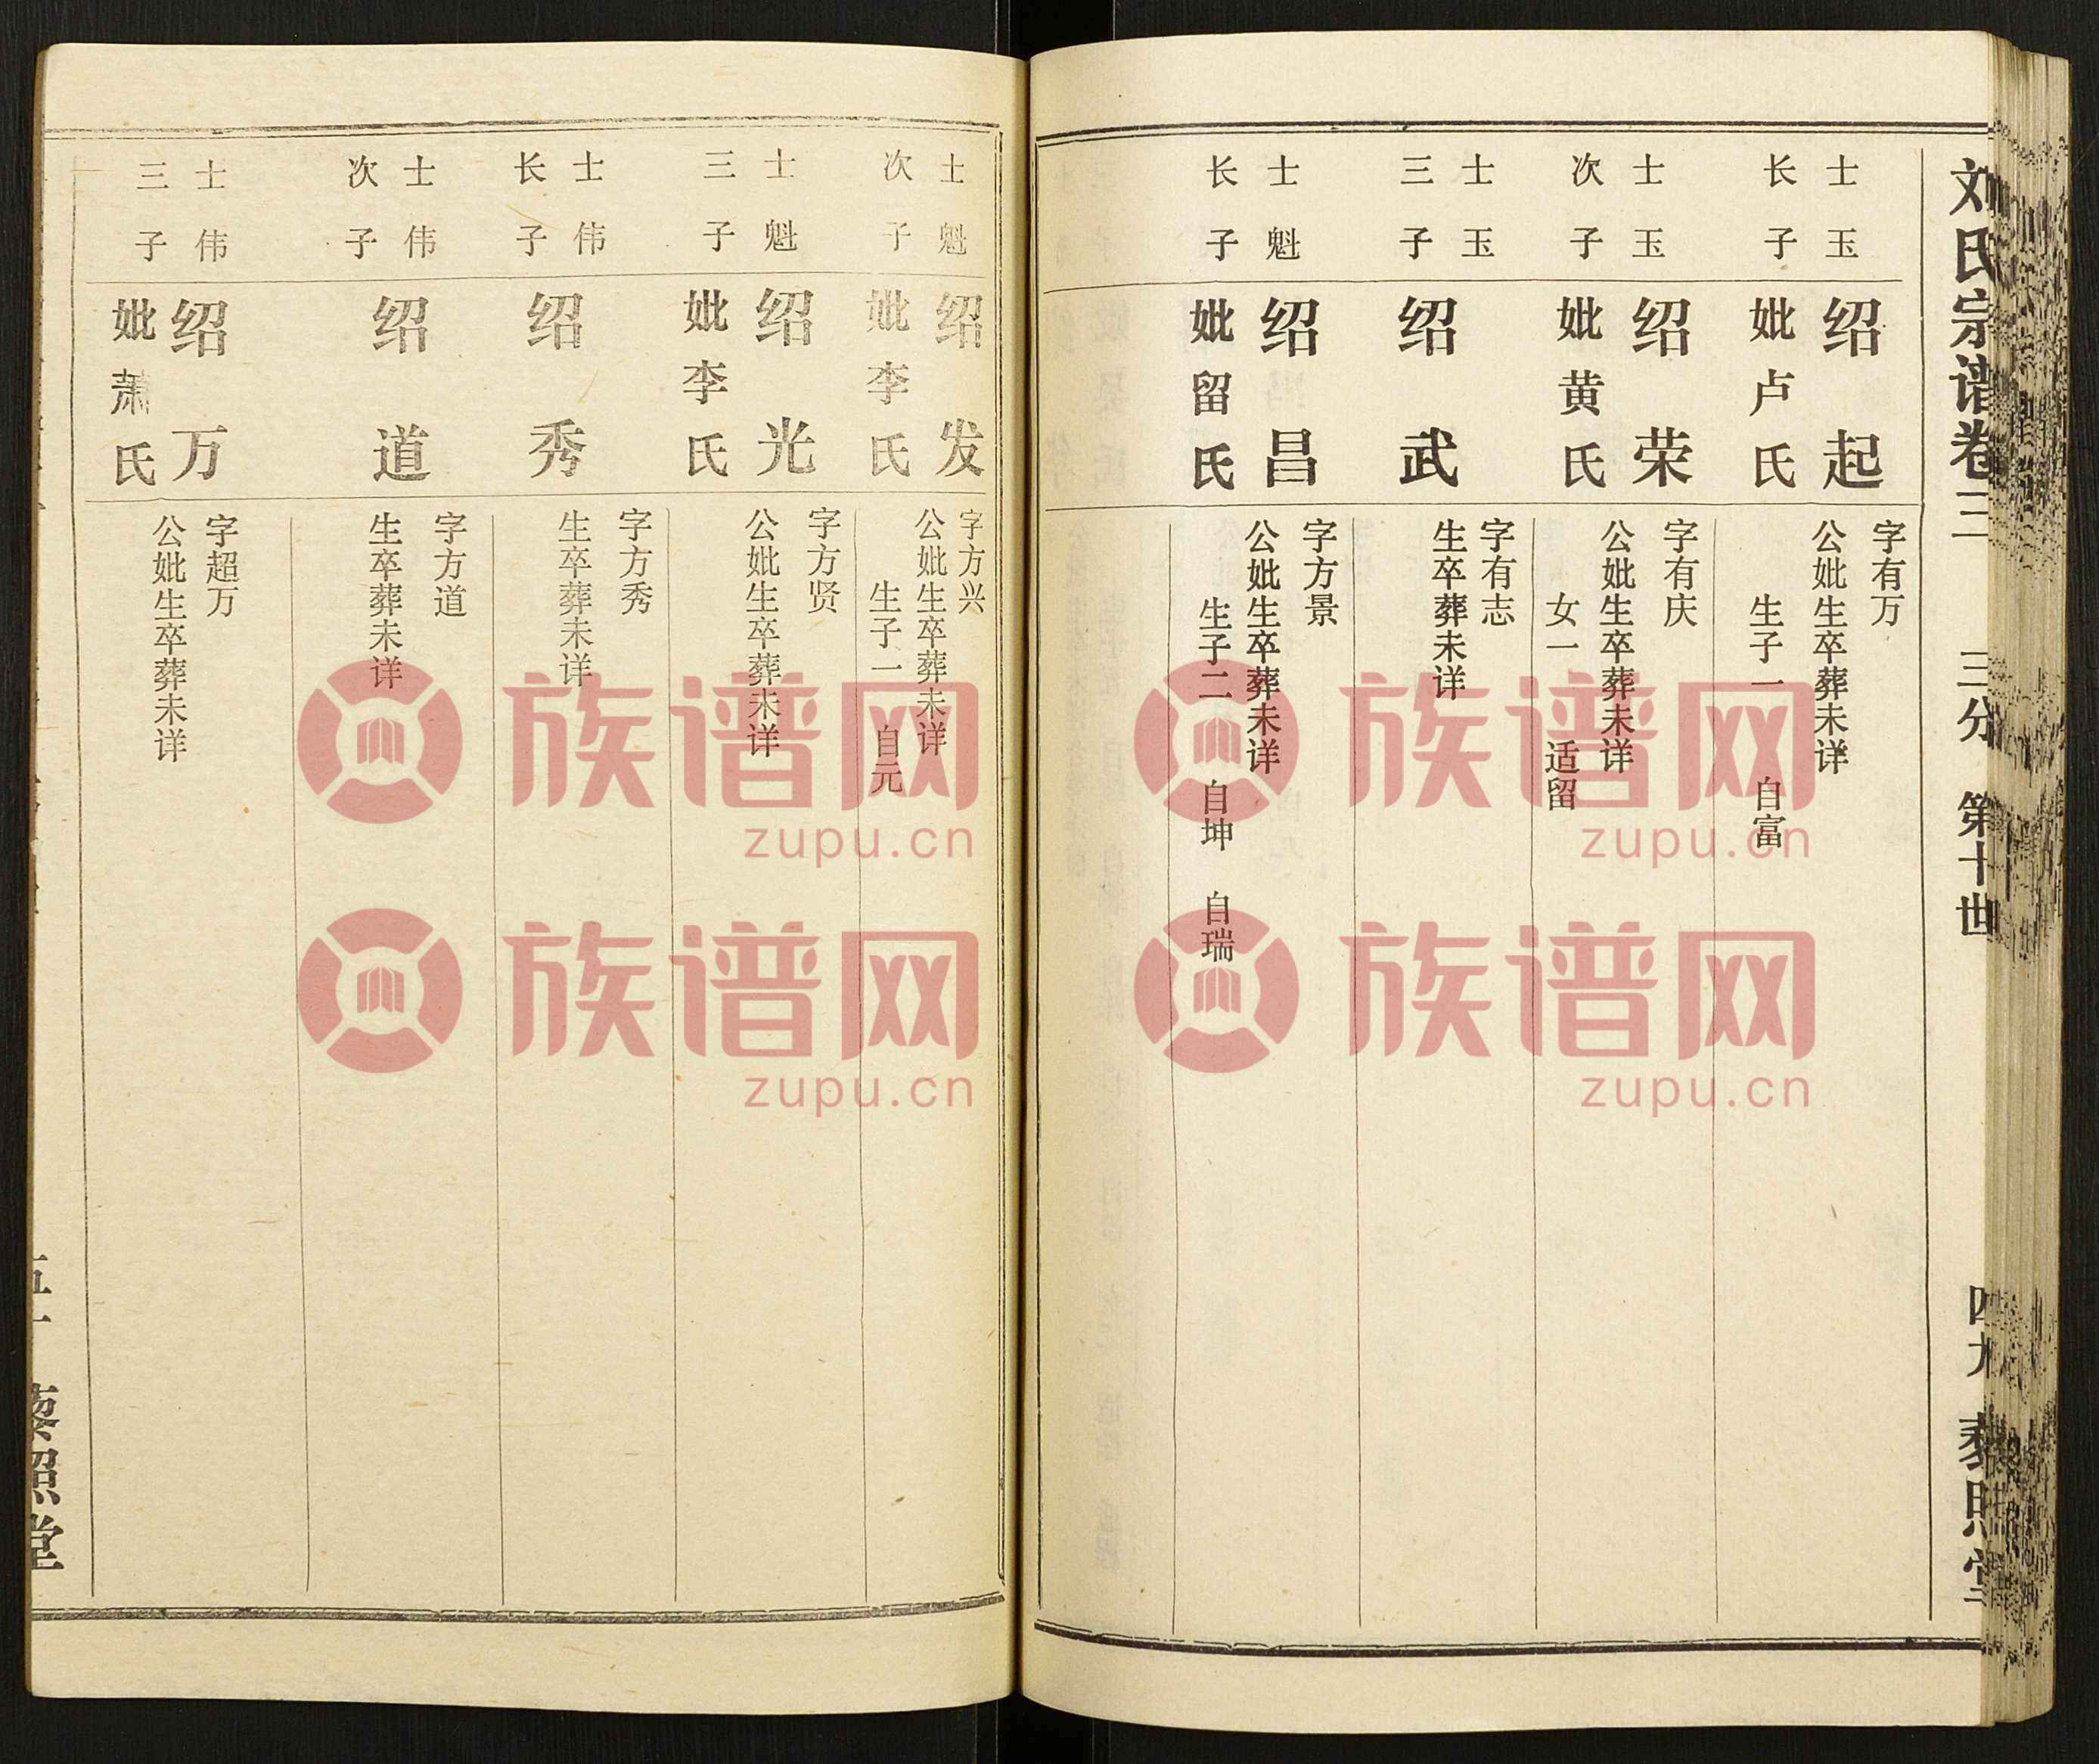 刘氏宗谱卷三 三分 第十世 四九 藜照堂
士玉
长子
绍起
妣卢氏
字有万
公妣生卒葬未详
生子一 自富
士玉
次子
绍荣
妣黄氏
字有庆
公妣生卒葬未详
女一 适留
士玉
三子
绍武
字有志
生卒葬未详
士魁
长子
绍昌
妣留氏
字方景
公妣生卒葬未详
生子二 自坤 自瑞
士魁
次子
绍发
妣李氏
字方兴
公妣生卒葬未详
生子一 自元
士魁
三子
绍光
妣李氏
字方贤
公妣生卒葬未详
士伟
长子
绍秀
字方秀
生卒葬未详
士伟
次子
绍道
字方道
生卒葬未详
士伟
三子
绍万
妣萧氏
字超万
公妣生卒葬未详
藜照堂
族谱网
zupu.cn
族谱网
zupu.cn
族谱网
zupu.cn
族谱网
zupu.cn